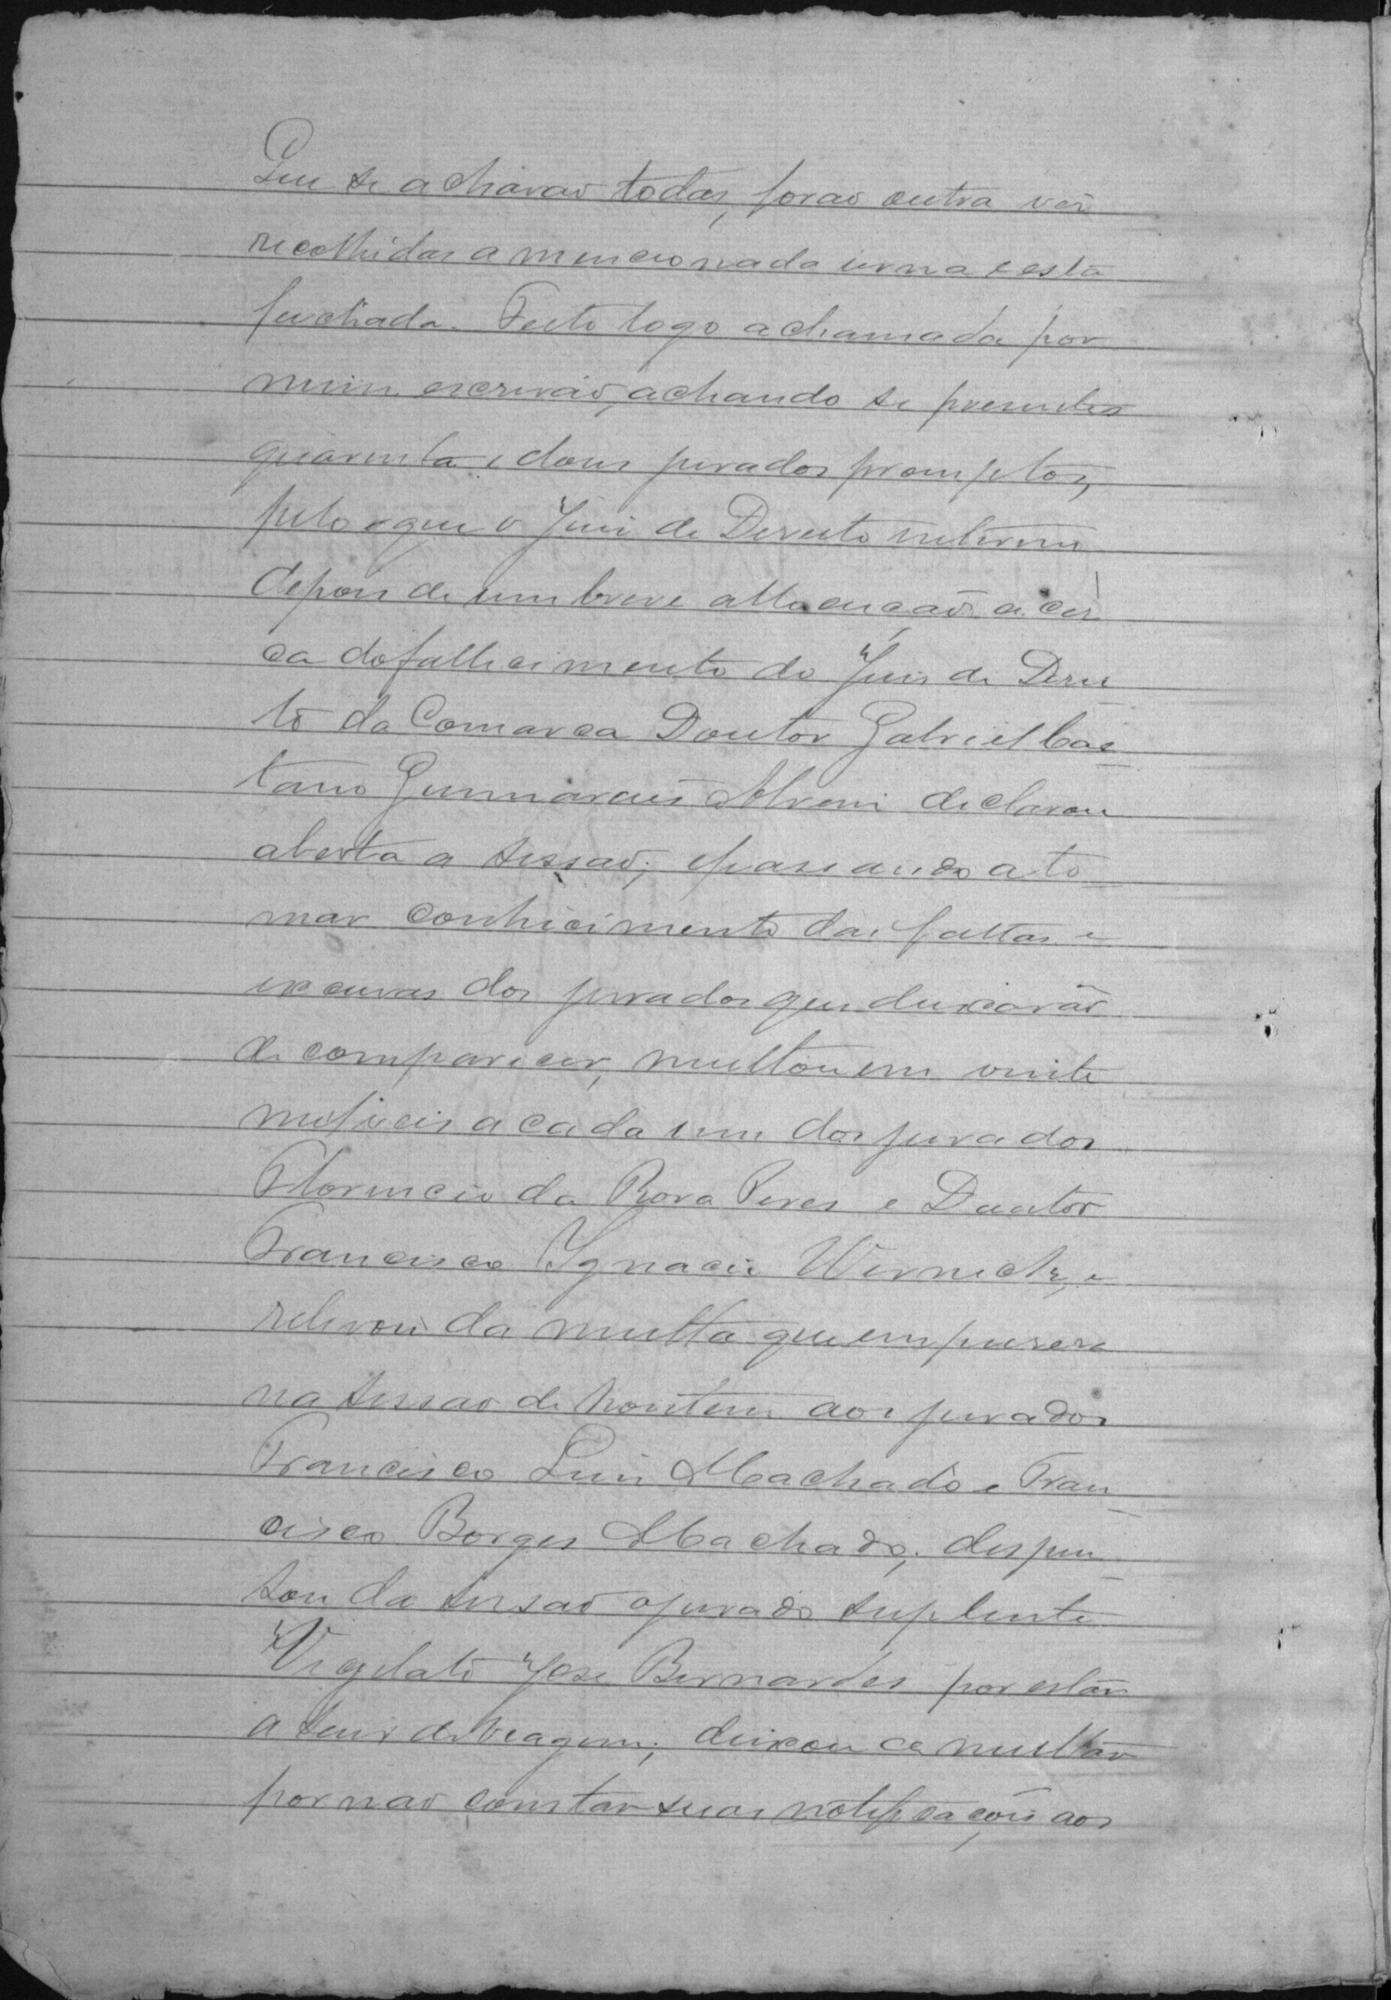 Que se acharão todas, forão outra vez
recolhidas a mencionada urna e esta
fechada. Feito logo a chamada por
mim escrivão, achando se presentes
quarenta e dous jurados promptos,
pelo que o Juiz de Direito interino
depois de um breve allocução a cer
ca do fallecimento do Juiz de Direi
to da Comarca Doutor Gabriel Cae
tano Guimarães Alvim declarou
aberta a sessão; e passando a to
mar conhecimento das faltas e
excusas dos jurados que deixarão
de comparecer, multou em vinte
mil reis a cada um dos jurados
Florencio da Roxa Peres e Doutor
Francisco Ignacio Werneck, e
relevou da multa que empuzera
na sessão de hontem aos jurados
Francisco Luiz Machado e Fran
cisco Borges Machado; dispen
sou da sessão o jurado suplente
Vigilato José Bernardes por estar
a seguir de viagem; deixou de multar
por não constar suas notificações aos